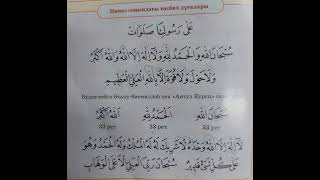 Намаз соңындағы тасбих дұғалары
عَلٰى رَسُولِنَا صَلَوَاتْ
سُبْحَانَ اللهِ وَالْحَمْدُ لِلّٰهِ وَلَا اِلٰهَ اِلَّا اللهُ وَاللهُ اَكْبَرُ
وَلَا حَوْلَ وَلَا قُوَّةَ اِلَّا بِاللهِ الْعَلِيِّ الْعَظِيمِ
Бұдан кейін Әғузу-Бисмилләһпен «Аятул Күрси»
سُبْحَانَ اللهِ اَلْحَمْدُ لِلّٰهِ اَللهُ اَكْبَرُ
33 рет 33 рет 33 рет
لَا اِلٰهَ اِلَّا اللهُ وَحْدَهُ لَا شَرِيكَ لَهُ لَهُ الْمُلْكُ وَلَهُ الْحَمْدُ وَهُوَ
عَلٰى كُلِّ شَيْءٍ قَدِيرٌ سُبْحَانَ رَبِّيَ الْعَلِيِّ الْاَعْلَى الْوَهَّابِ